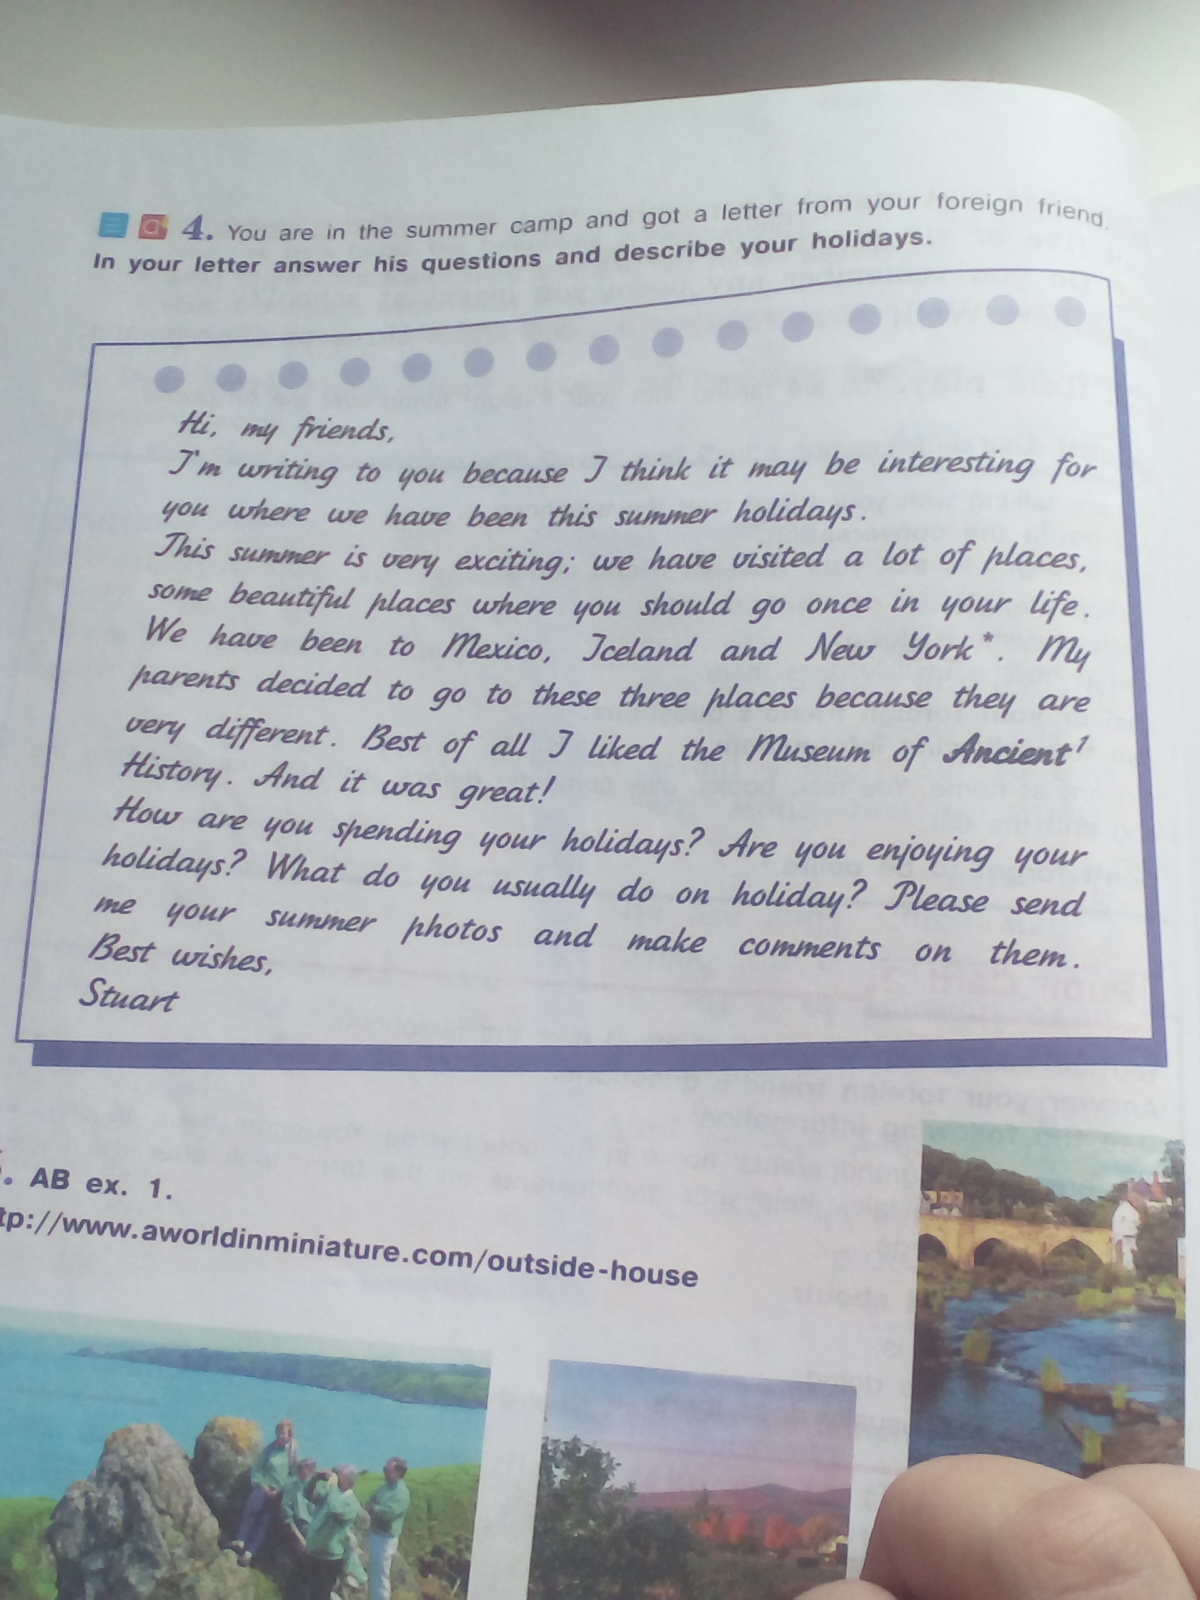 4. You are in the summer camp and got a letter from your foreign friend.
In your letter answer his questions and describe your holidays.
Hi, my friends,
I'm writing to you because I think it may be interesting for
you where we have been this summer holidays.
This summer is very exciting; we have visited a lot of places,
some beautiful places where you should go once in your life.
We have been to Mexico, Iceland and New York*. My
parents decided to go to these three places because they are
very different. Best of all I liked the Museum of Ancient¹
History. And it was great!
How are you spending your holidays? Are you enjoying your
holidays? What do you usually do on holiday? Please send
me your summer photos and make comments on them.
Best wishes,
Stuart
. AB ex. 1.
tp://www.aworldinminiature.com/outside-house